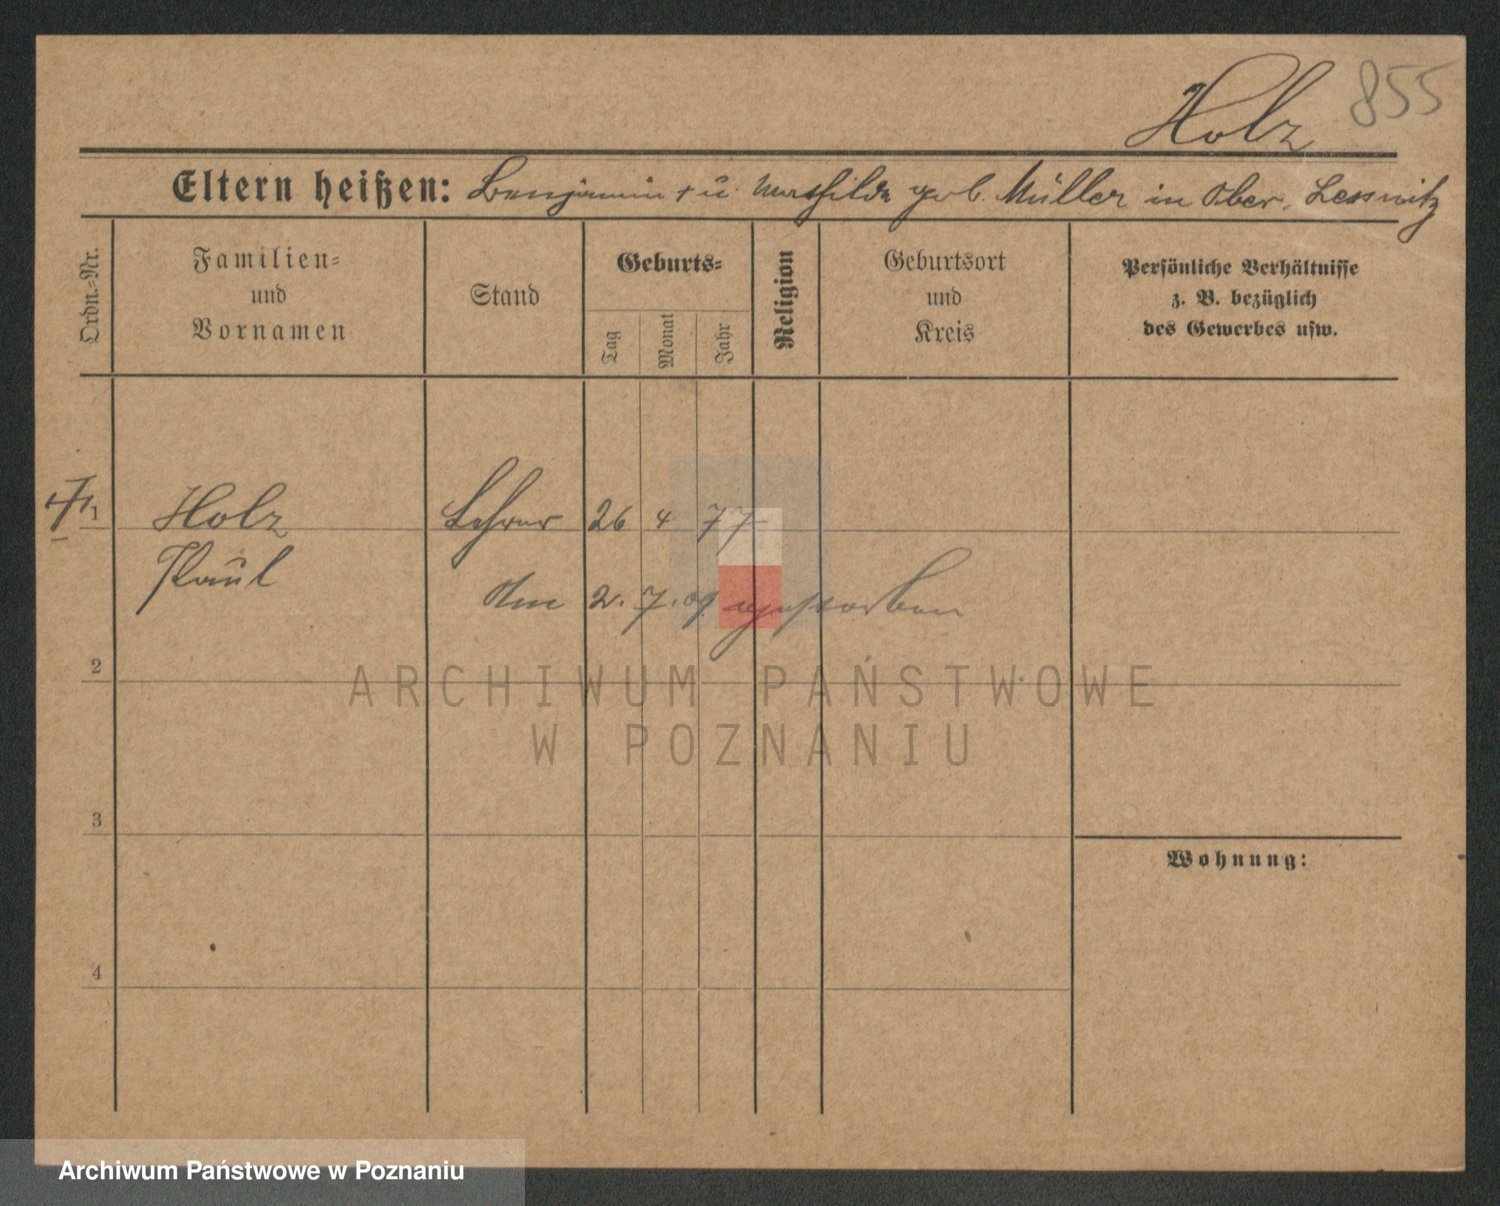 Holz 855
Eltern heißen: Benjamin + u. Mathilde geb. Müller in Ober-Lessnitz
Ordn.-Nr.
Familien-
und
Vornamen
Stand
Geburts-
Tag
Monat
Jahr
Religion
Geburtsort
und
Kreis
Persönliche Verhältnisse
z. B. bezüglich
des Gewerbes usw.
1 Holz Lehrer 26 4 77
Paul
Am 2. 7. 09 gestorben
2
ARCHIWUM PAŃSTWOWE
W POZNANIU
3
Wohnung:
4
Archiwum Państwowe w Poznaniu